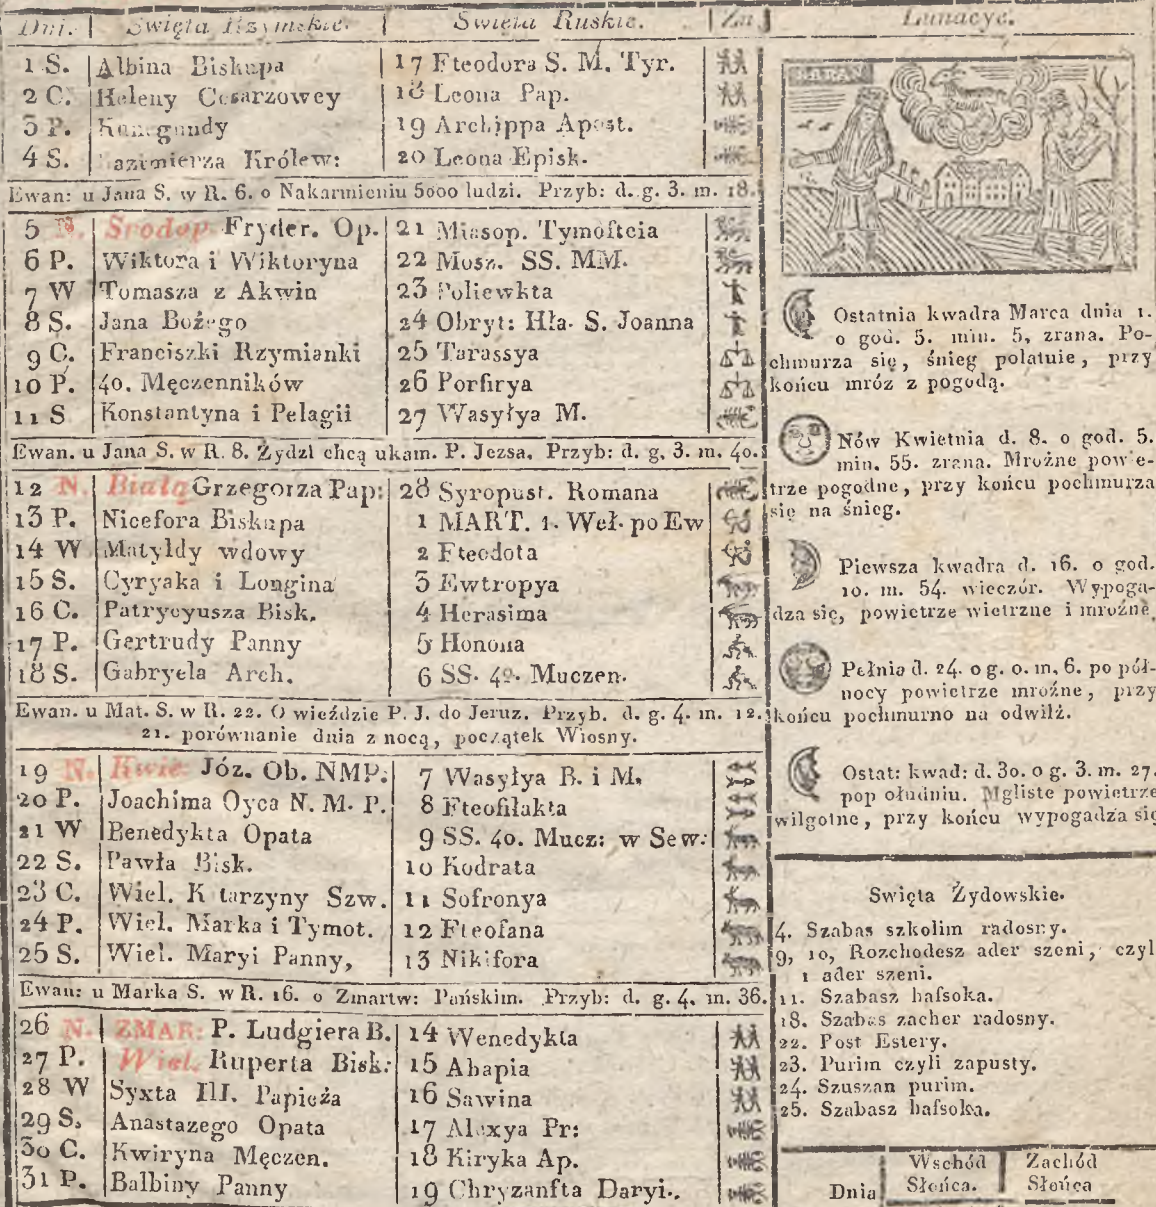 Dni. Święta Rzymskie. Swięta Ruskie. Zn.
1 S. Albina Biskupa 17 Fteodora S. M. Tyr.
2 C. Heleny Cesarzowey 18 Leona Pap.
3 P. Kunegundy 19 Archippa Apost.
4 S. Kazimierza Królew: 20 Leona Episk.
Ewan: u Jana S. w R. 6. o Nakarmieniu 5000 ludzi. Przyb: d. g. 3. m. 18.
5 N. Srodop. Fryder. Op. 21 Miasop. Tymoftcia
6 P. Wiktora i Wiktoryna 22 Mosz. SS. MM.
7 W Tomasza z Akwin 23 Poliewkta
8 S. Jana Bożego 24 Obryt: Hła. S. Joanna
9 C. Franciszki Rzymianki 25 Tarassya
10 P. 40. Męczenników 26 Porfirya
11 S Konstantyna i Pelagii 27 Wasyłya M.
Ewan. u Jana S. w R. 8. Żydzi chcą ukam. P. Jezsa. Przyb: d. g. 3. m. 40.
12 N. Biała Grzegorza Pap: 28 Syropust. Romana
13 P. Nicefora Biskupa 1 MART. 1. Weł. po Ew
14 W Matyldy wdowy 2 Fteodota
15 S. Cyryaka i Longina 3 Ewtropya
16 C. Patrycyusza Bisk. 4 Herasima
17 P. Gertrudy Panny 5 Honona
18 S. Gabryela Arch. 6 SS. 40. Muczen.
Ewan. u Mat. S. w R. 22. O wieździe P. J. do Jeruz. Przyb. d. g. 4. m. 12.
21. porównanie dnia z nocą, początek Wiosny.
19 N. Kwie. Józ. Ob. NMP. 7 Wasyłya B. i M.
20 P. Joachima Oyca N. M. P. 8 Fteofilakta
21 W Benedykta Opata 9 SS. 40. Mucz: w Sew:
22 S. Pawła Bisk. 10 Kodrata
23 C. Wiel. K tarzyny Szw. 11 Sofronya
24 P. Wiel. Marka i Tymot. 12 Fteofana
25 S. Wiel. Maryi Panny, 13 Nikifora
Ewan: u Marka S. w R. 16. o Zmartw: Pańskim. Przyb: d. g. 4. m. 36.
26 N. ZMAR: P. Ludgiera B. 14 Wenedykta
27 P. Wiel. Ruperta Bisk: 15 Ahapia
28 W Syxta III. Papieża 16 Sawina
29 S. Anastazego Opata 17 Alexya Pr:
30 C. Kwiryna Męczen. 18 Kiryka Ap.
31 P. Balbiny Panny 19 Chryzanfta Daryi.
Lunacye.
BARAN
Ostatnia kwadra Marca dnia 1.
o god. 5. min. 5, zrana. Po-
chmurza się, śnieg polatuie, przy
końcu mróz z pogodą.
Nów Kwietnia d. 8. o god. 5.
min. 55. zrana. Mroźne powie-
trze pogodne, przy końcu pochmurza
się na śnieg.
Piewsza kwadra d. 16. o god.
10. m. 54. wieczór. Wypoga-
dza się, powietrze wietrzne i mroźne.
Pełnia d. 24. o g. 0. m. 6. po pół-
nocy powietrze mroźne, przy
końcu pochmurno na odwilż.
Ostat: kwad: d. 30. o g. 3. m. 27.
pop ołudniu. Mgliste powietrze
wilgotne, przy końcu wypogadza się
Swięta Żydowskie.
4. Szabas szkolim radosny.
9, 10, Rozchodesz ader szeni, czyl
1 ader szeni.
11. Szabasz hafsoka.
18. Szabas zacher radosny.
22. Post Estery.
23. Purim czyli zapusty.
24. Szuszan purim.
25. Szabasz hafsoka.
Dnia Wschód Słońca. Zachód Słońca